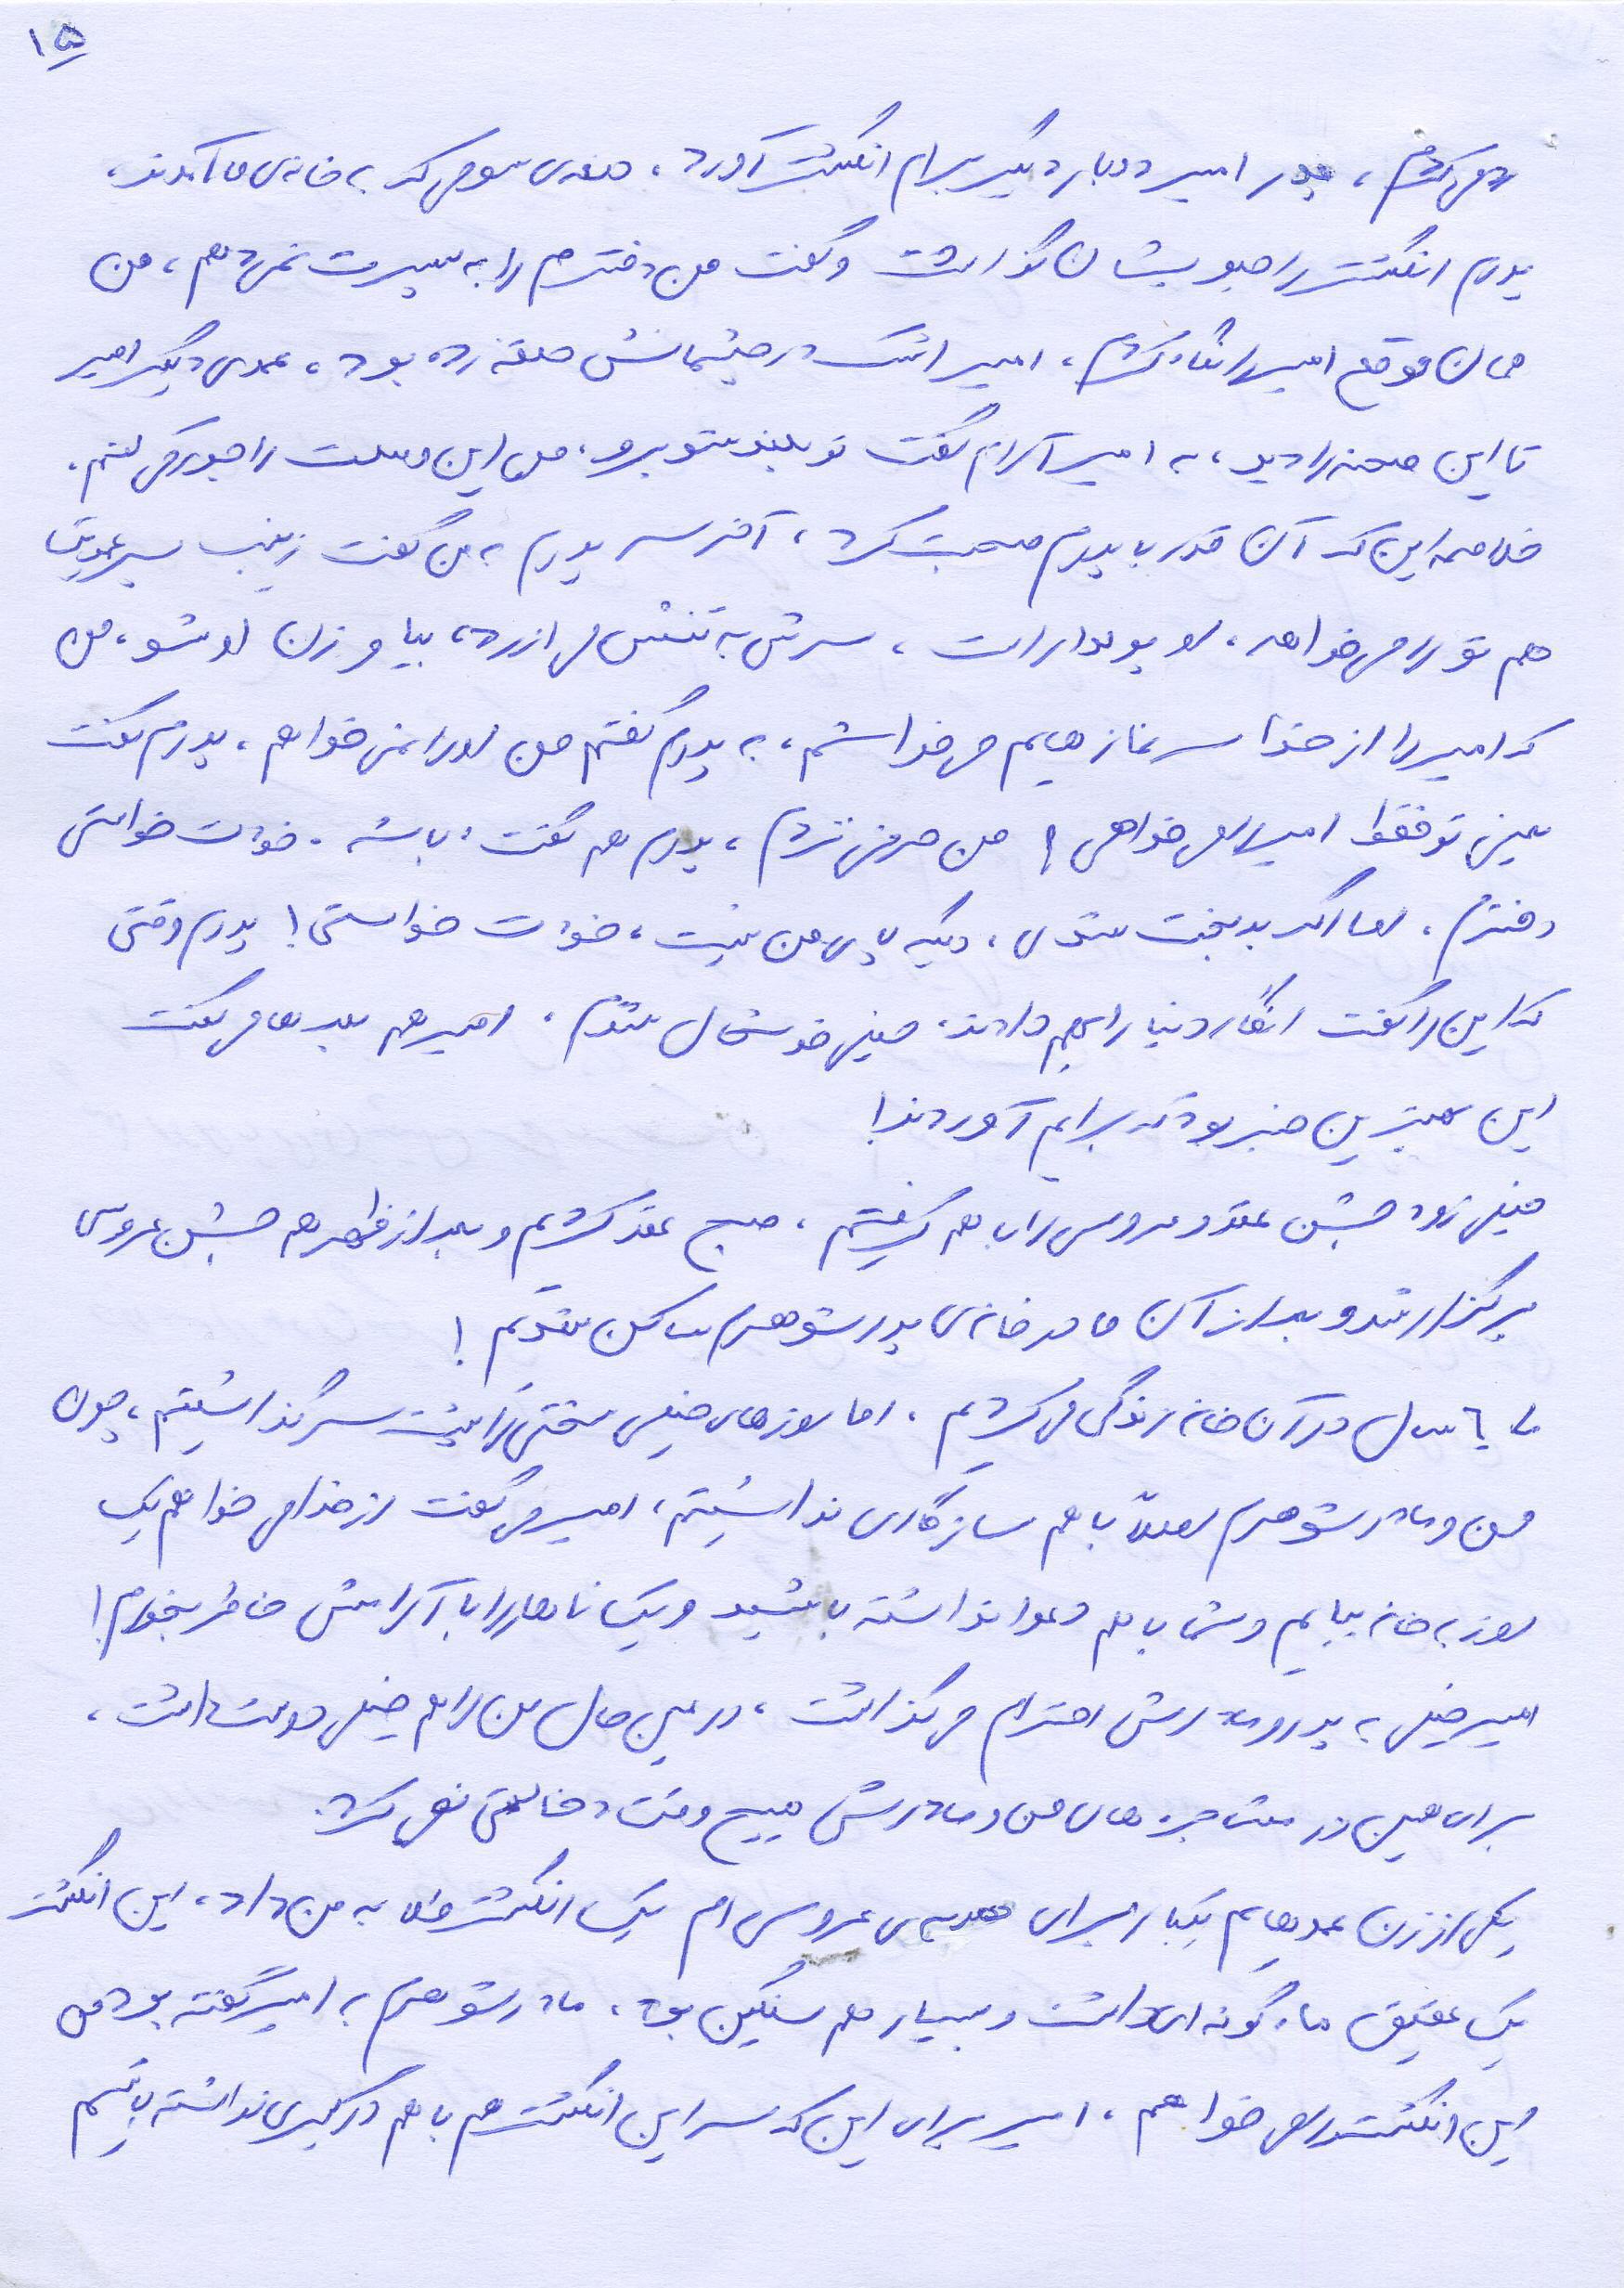 ۱۵
رد می‌کردم، پدر امیر دوبار دیگر برایم انگشتر آورد، دفعه‌ی سوم که به خانه‌ی ما آمدند،
پدرم انگشتر را جلویشان گذاشت و گفت من دخترم را به پسرت نمی‌دهم، من
همان موقع امیر را نگاه کردم، امیر اشک در چشمانش حلقه زده بود، عموی دیگر امیر
تا این صحنه را دید، به امیر آرام گفت تو بلند شو برو، من این وصلت را جور می‌کنم.
خلاصه این که آن قدر با پدرم صحبت کرد، آخر سر پدرم به من گفت زینب پسر عمویت
هم تو را می‌خواهد، او پولدار است، سرش به تنش می‌ارزد، بیا و زن او شو، من
که امیر را از خدا سر نمازهایم می‌خواستم، به پدرم گفتم من او را نمی‌خواهم، پدرم گفت
یعنی تو فقط امیر را می‌خواهی؟ من حرفی نزدم، پدرم هم گفت، باشه. خودت خواستی
دخترم، اما اگر بدبخت شدی، دیگه پای من نیست، خودت خواستی! پدرم وقتی
که این را گفت انگار دنیا را بهم دادند. خیلی خوشحال شدم. امیر هم بعدها می‌گفت
این بهترین خبر بود که برایم آوردند!
خیلی زود جشن عقد و عروسی را با هم گرفتیم، صبح عقد کردیم و بعد از ظهر هم جشن عروسی
برگزار شد و بعد از آن ما در خانه‌ی پدر شوهرم ساکن شدیم!
ما ۶ سال در آن خانه زندگی می‌کردیم. اما روزهای خیلی سختی را پشت سر گذاشتیم، چون
من و مادر شوهرم اصلاً با هم سازگاری نداشتیم، امیر می‌گفت از خدا می‌خواهم یک
روز به خانه بیایم و شما با هم دعوا نداشته باشید و یک ناهار را با آرامش خاطر بخورم!
امیر خیلی به پدر و مادرش احترام می‌گذاشت، در عین حال من را هم خیلی دوست داشت،
برای همین در مشاجره‌های من و مادرش هیچ وقت دخالتی نمی‌کرد.
یکی از زن عموهایم یکبار برای هدیه‌ی عروسی ام یک انگشتر طلا به من داد، این انگشتر
یک عقیق ماه گونه‌ای داشت و بسیار هم سنگین بود، مادر شوهرم به امیر گفته بود من
این انگشتر را می‌خواهم، امیر برای این که سر این انگشتر هم با هم درگیری نداشته باشیم